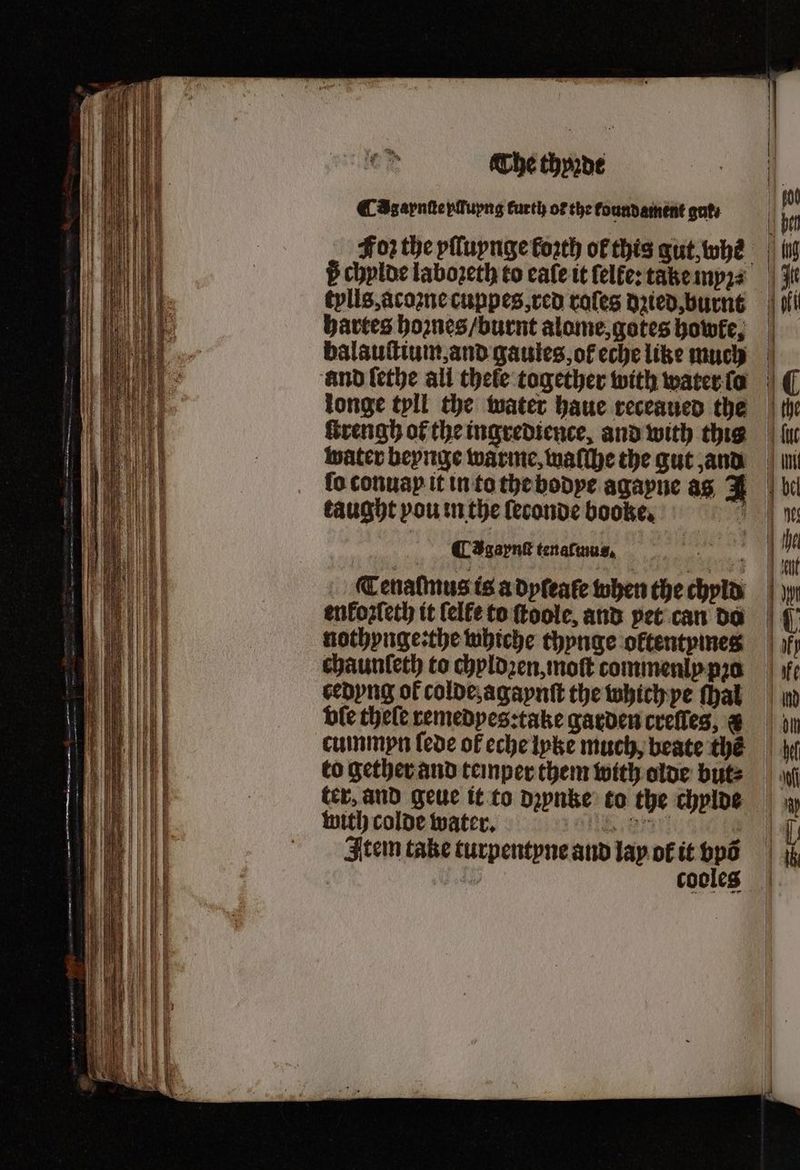 The thyrde
¶ Agaynste yssuyng furth of the foundament gut.
For the yssuynge forth of this gut, whē
þ chylde laboreth to ease it selfe: take myrs
tylls, acorne cuppes, red roses dried, burnt
hartes hornes/burnt alome, gotes howfe,
balaustium, and gaules, of eche like much
and sethe all these together with water so
longe tyll the water haue receaued the
strengh of the ingredience, and with this
water beynge warme, wasshe the gut, and
so conuay it in to the bodye agayne as I
taught you in the seconde booke.
¶ Agaynst tenasmus.
Tenasmus is a dysease when the chyld
enforseth it selfe to stoole, and yet can do
nothynge: the whiche thynge oftentymes
chaunseth to chyldren, most commenly pro
cedyng of colde, agaynst the which ye shal
vse these remedyes: take garden cresses, &
cummyn sede of eche lyke much, beate thē
to gether and temper them with olde but=
ter, and geue it to drynke to the chylde
with colde water.
Item take turpentyne and lay of it vpō
cooles